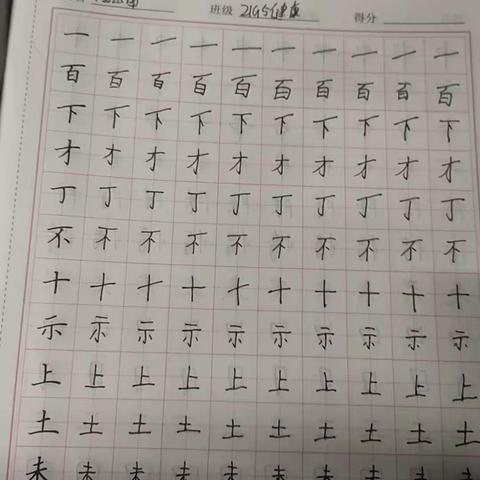 班级 21G5健康 得分
一 一 一 一 一 一 一 一 一 一
百 百 百 百 百 百 百 百 百 百
下 下 下 下 下 下 下 下 下 下
才 才 才 才 才 才 才 才 才 才
丁 丁 丁 丁 丁 丁 丁 丁 丁 丁
不 不 不 不 不 不 不 不 不 不
十 十 十 十 十 十 十 十 十 十
示 示 示 示 示 示 示 示 示 示
上 上 上 上 上 上 上 上 上 上
土 土 土 土 土 土 土 土 土 土
未 未 未 未 未 未 未 未 未 未